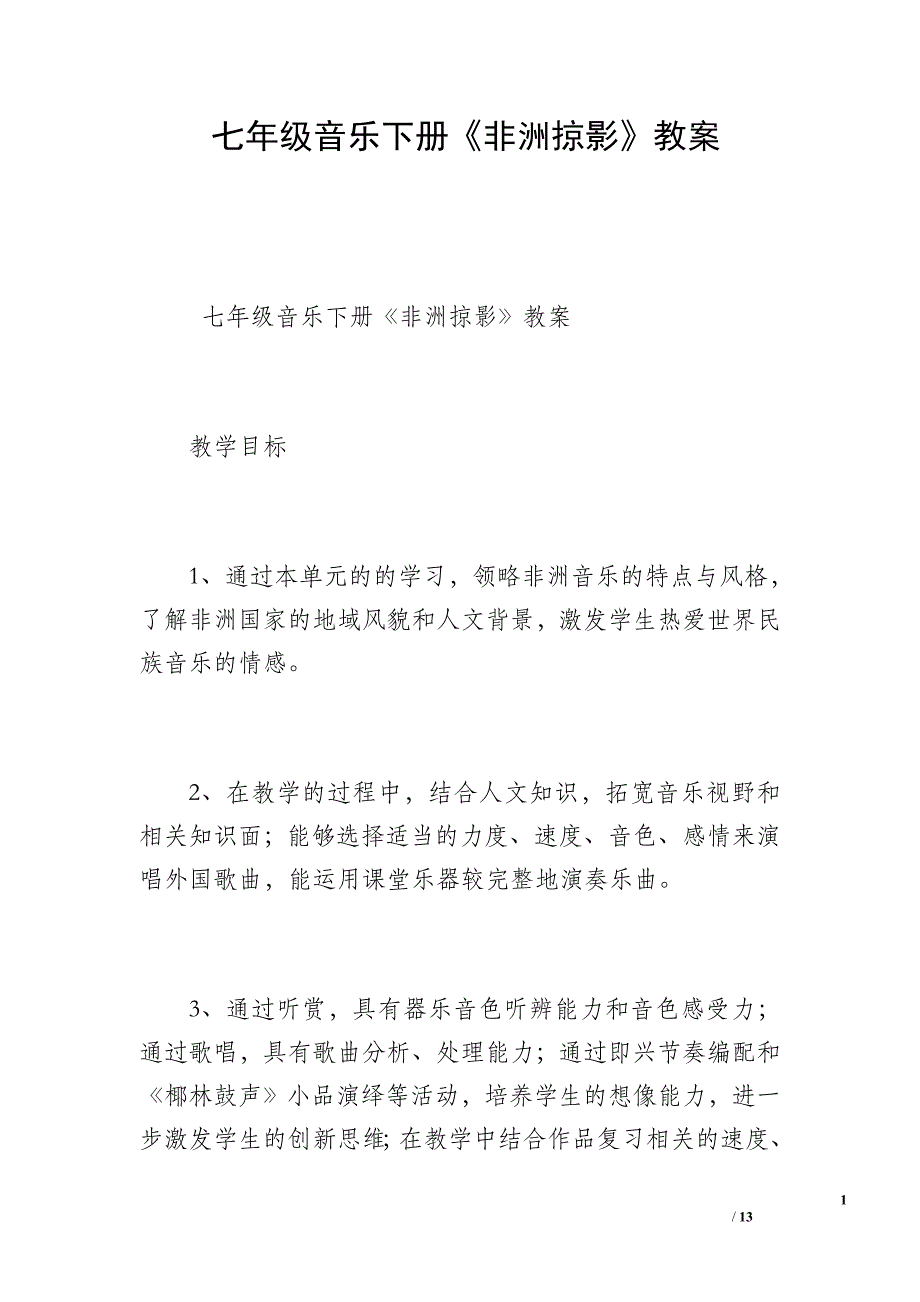 七年级音乐下册《非洲掠影》教案
七年级音乐下册《非洲掠影》教案
教学目标
1、通过本单元的的学习，领略非洲音乐的特点与风格，
了解非洲国家的地域风貌和人文背景，激发学生热爱世界民
族音乐的情感。
2、在教学的过程中，结合人文知识，拓宽音乐视野和
相关知识面；能够选择适当的力度、速度、音色、感情来演
唱外国歌曲，能运用课堂乐器较完整地演奏乐曲。
3、通过听赏，具有器乐音色听辨能力和音色感受力；
通过歌唱，具有歌曲分析、处理能力；通过即兴节奏编配和
《椰林鼓声》小品演绎等活动，培养学生的想像能力，进一
步激发学生的创新思维；在教学中结合作品复习相关的速度、
1
/ 13